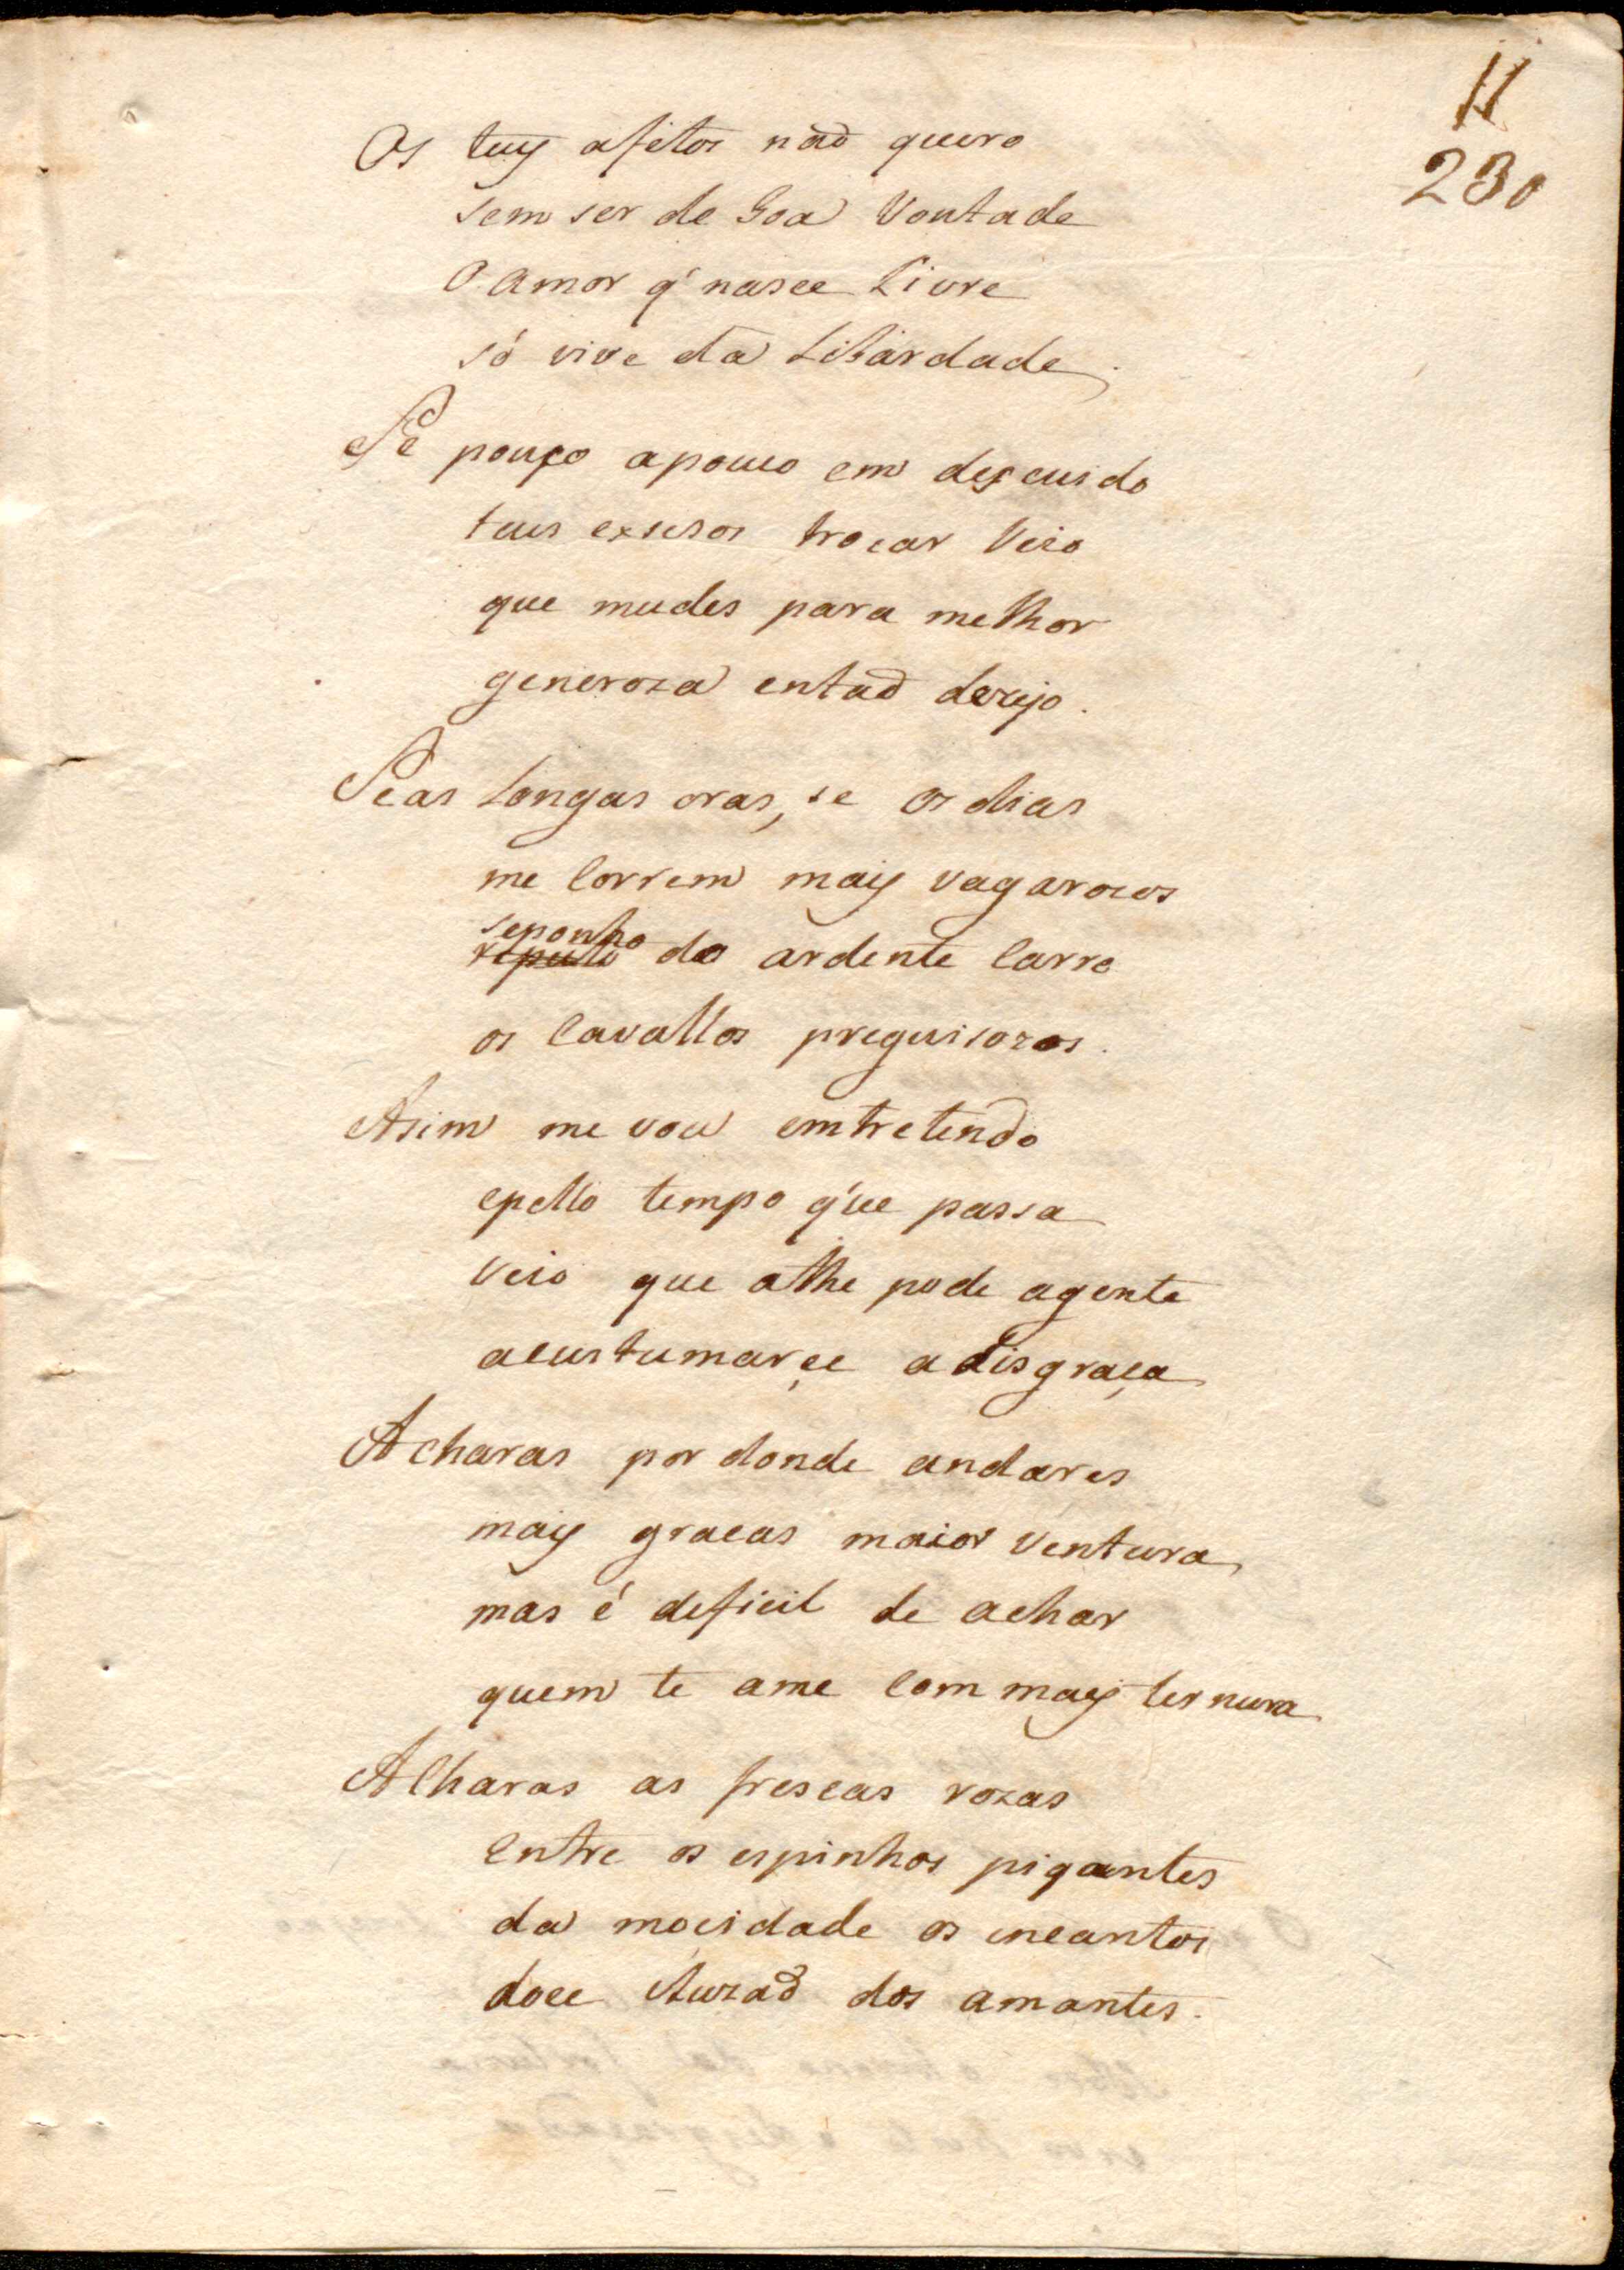 11
230
Os tuys afetos naõ quero
sem ser de boa vontade
O amor q' nasce Livre
só vive da Libardade.
Se pouço apouco em descuido
teus exsesos trocar veio
que mudes para melhor
generoza entaõ dezejo.
Se as Longas oras, se os dias
me correm mais vagarozos
seponho
reputo do ardente carro
os cavallos preguisozos.
Asim me vou emtretendo
epello tempo q'ue passa
veio que athe pode agente
acustumarçe adisgraça
Acharas por donde andares
mais gracas maior ventura
mas é deficil de achar
quem te ame com mais ternura
Acharas as frescas rozas
entre os espinhos pigantes
da mocidade os incantos
doce iluzaõ dos amantes.